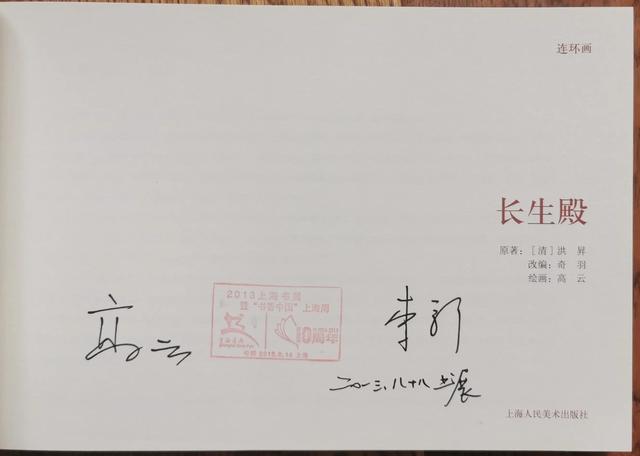 连环画
长生殿
原著：［清］洪 昇
改编：奇 羽
绘画：高 云
2013上海书展
暨“书香中国”上海周
10周年
高云
二〇一三.八.十八 书展
上海人民美术出版社